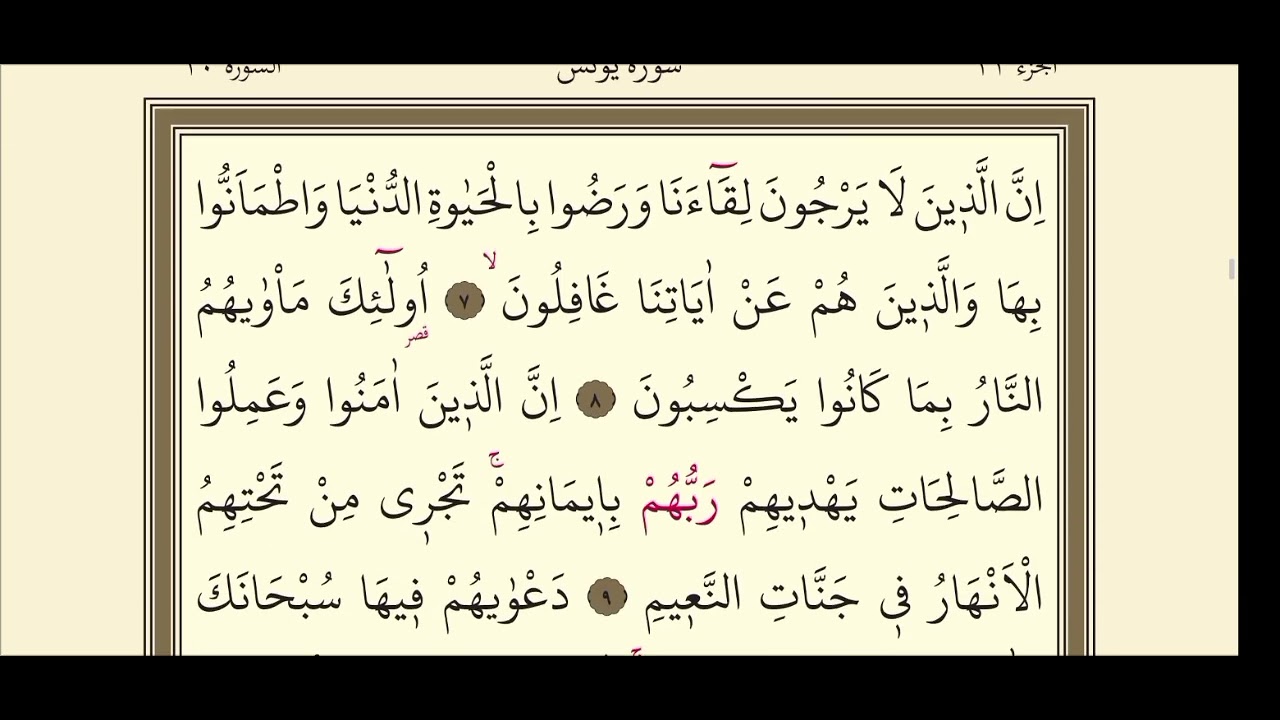 الجزء ١١ سورة يونس السورة ١٠
اِنَّ الَّذ۪ينَ لَا يَرْجُونَ لِقَٓاءَنَا وَرَضُوا بِالْحَيٰوةِ الدُّنْيَا وَاطْمَاَنُّوا
بِهَا وَالَّذ۪ينَ هُمْ عَنْ اٰيَاتِنَا غَافِلُونَۙ ﴿٧﴾ اُو۬لٰٓئِكَ مَاْوٰيهُمُ
قصر
النَّارُ بِمَا كَانُوا يَكْسِبُونَ ﴿٨﴾ اِنَّ الَّذ۪ينَ اٰمَنُوا وَعَمِلُوا
الصَّالِحَاتِ يَهْد۪يهِمْ رَبُّهُمْ بِا۪يمَانِهِمْۚ تَجْر۪ي مِنْ تَحْتِهِمُ
الْاَنْهَارُ ف۪ي جَنَّاتِ النَّع۪يمِ ﴿٩﴾ دَعْوٰيهُمْ ف۪يهَا سُبْحَانَكَ